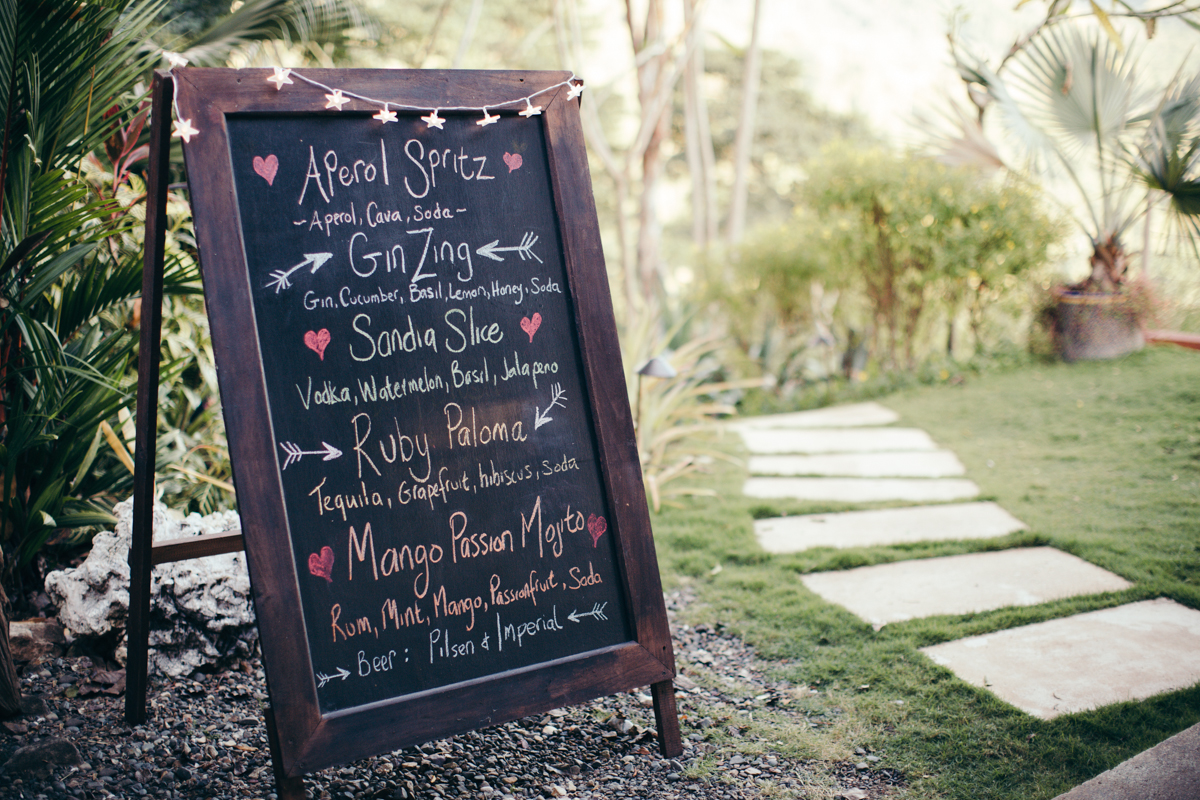 Aperol Spritz
~Aperol, Cava, Soda~
GinZing
Gin, Cucumber, Basil, Lemon, Honey, Soda
Sandia Slice
Vodka, Watermelon, Basil, Jalapeno
Ruby Paloma
Tequila, Grapefruit, hibiscus, Soda
Mango Passion Mojito
Rum, Mint, Mango, Passionfruit, Soda
Beer: Pilsen & Imperial